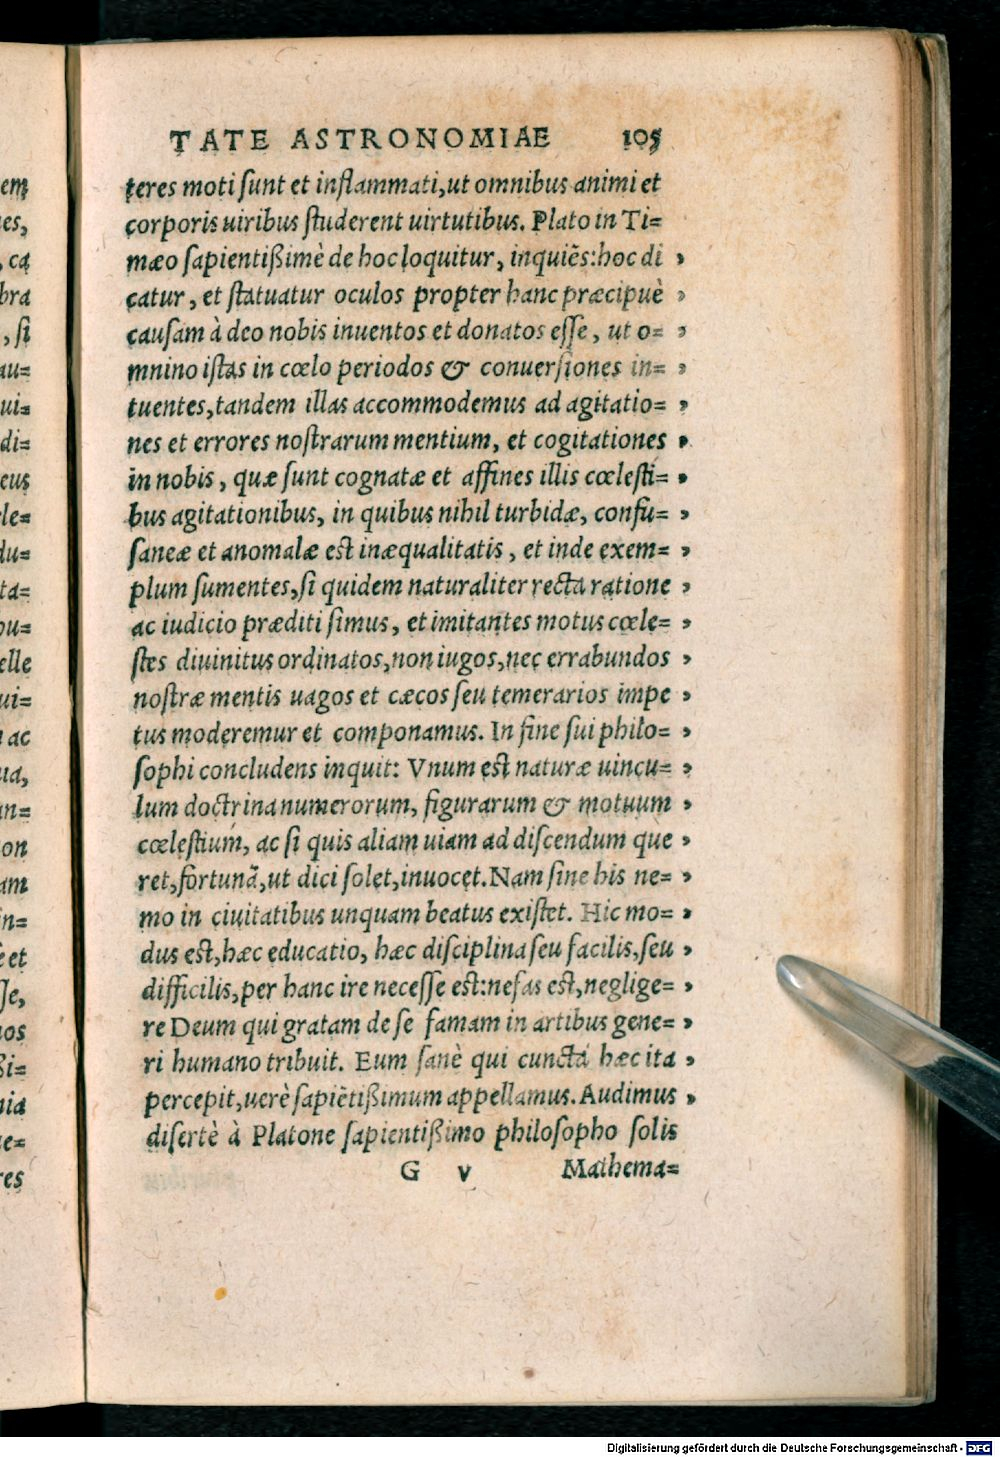 TATE ASTRONOMIAE 105
teres moti sunt et inflammati, ut omnibus animi et
corporis uiribus studerent uirtutibus. Plato in Ti=
mæo sapientißimè de hoc loquitur, inquiẽs: hoc di „
catur, et statuatur oculos propter hanc præcipuè „
causam à deo nobis inuentos et donatos esse, ut o= „
mnino istas in cœlo periodos & conuersiones in= „
tuentes, tandem illas accommodemus ad agitatio= „
nes et errores nostrarum mentium, et cogitationes „
in nobis, quæ sunt cognatæ et affines illis cœlesti= „
bus agitationibus, in quibus nihil turbidæ, confu= „
saneæ et anomalæ est inæqualitatis, et inde exem= „
plum sumentes, si quidem naturaliter recta ratione „
ac iudicio præditi simus, et imitantes motus cœle= „
stes diuinitus ordinatos, non iugos, nec errabundos „
nostræ mentis uagos et cæcos seu temerarios impe „
tus moderemur et componamus. In fine sui philo= „
sophi concludens inquit: Vnum est naturæ uincu= „
lum doctrina numerorum, figurarum & motuum „
cœlestium, ac si quis aliam uiam ad discendum que „
ret, fortunã, ut dici solet, inuocet. Nam sine his ne= „
mo in ciuitatibus unquam beatus existet. Hic mo= „
dus est, hæc educatio, hæc disciplina seu facilis, seu „
difficilis, per hanc ire necesse est: nefas est, neglige= „
re Deum qui gratam de se famam in artibus gene= „
ri humano tribuit. Eum sanè qui cuncta hæc ita „
percepit, uerè sapiẽtißimum appellamus. Audimus „
disertè à Platone sapientißimo philosopho solis
G v Mathema=
Digitalisierung gefördert durch die Deutsche Forschungsgemeinschaft - DFG